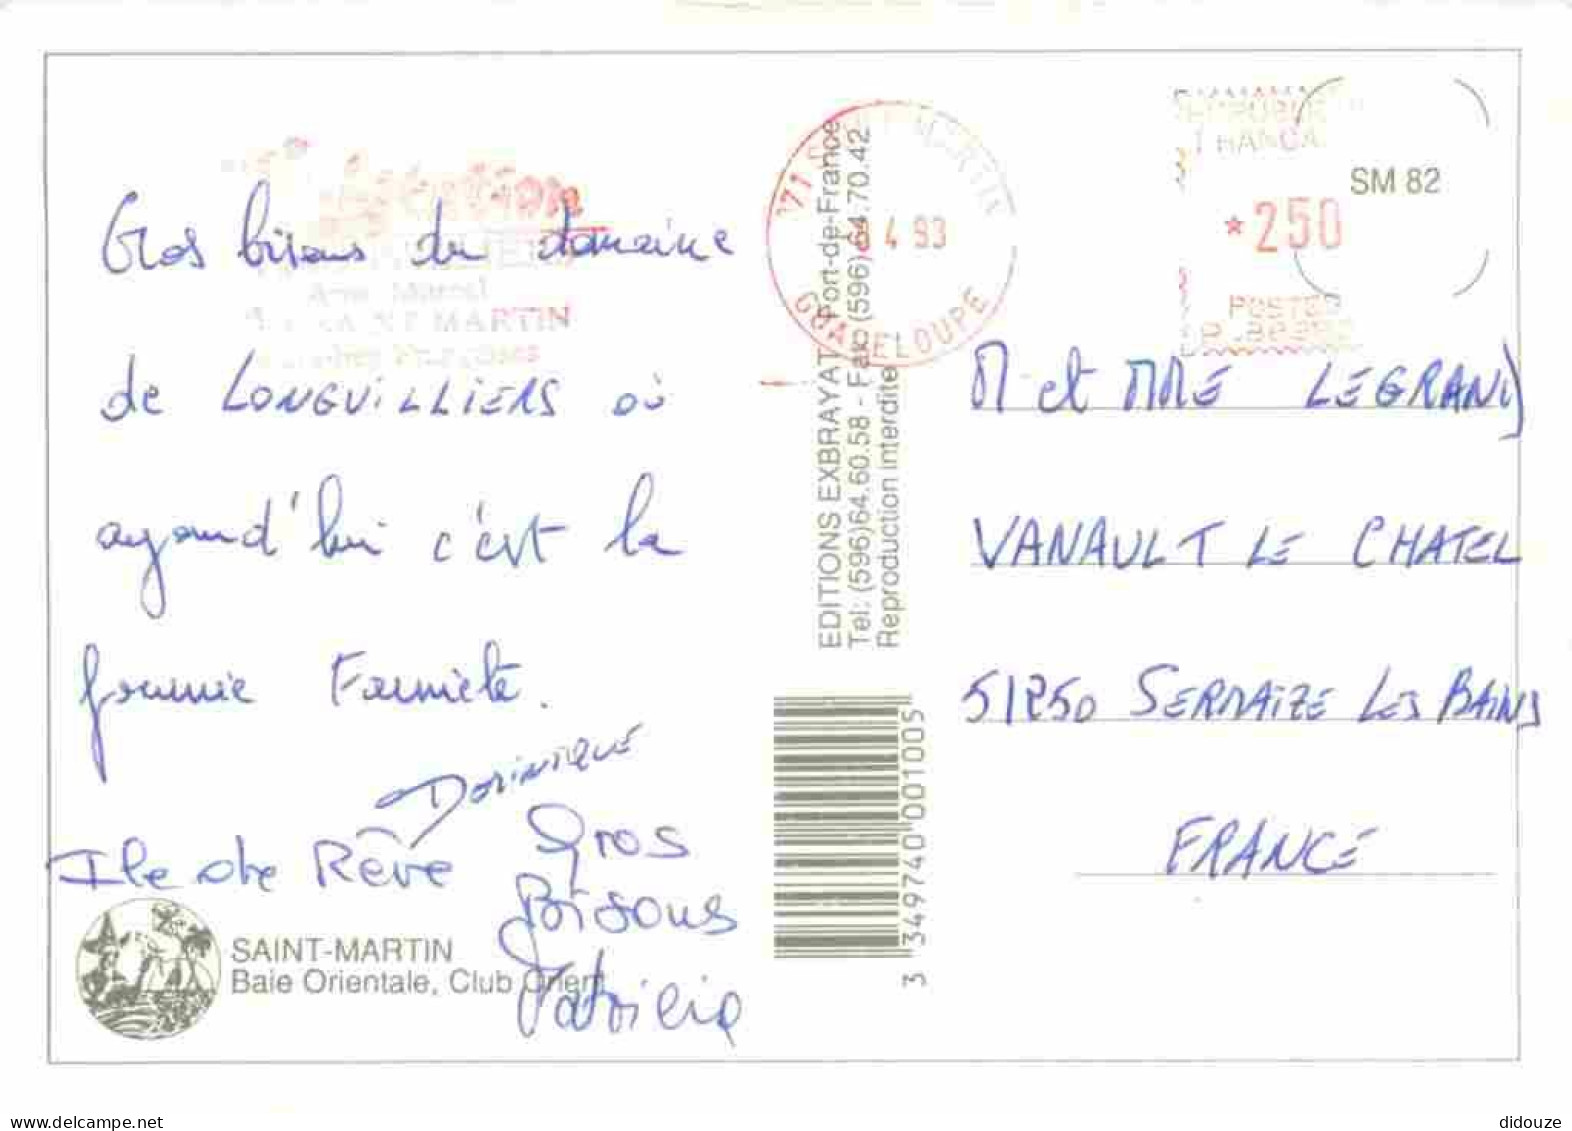 Gros bisous du domaine
de LONGVILLIERS où
aujourd'hui c'est la
journée Farniete.
DOMINIQUE
Ile de Rêve
Gros
Bisous
Patricia
SAINT-MARTIN
Baie Orientale, Club Orient
MARTIN
EDITIONS EXBRAYAT Fort-de-France
Tel: (596)64.60.58 - Fax: (596)64.70.42
Reproduction interdite
3 349740 001005
MARTIN
4 93
GUADELOUPE
SM 82
*250
POSTES
M et MME LEGRAND
VANAULT LE CHATEL
51250 SERMAIZE LES BAINS
FRANCE
delcampe.net
didouze